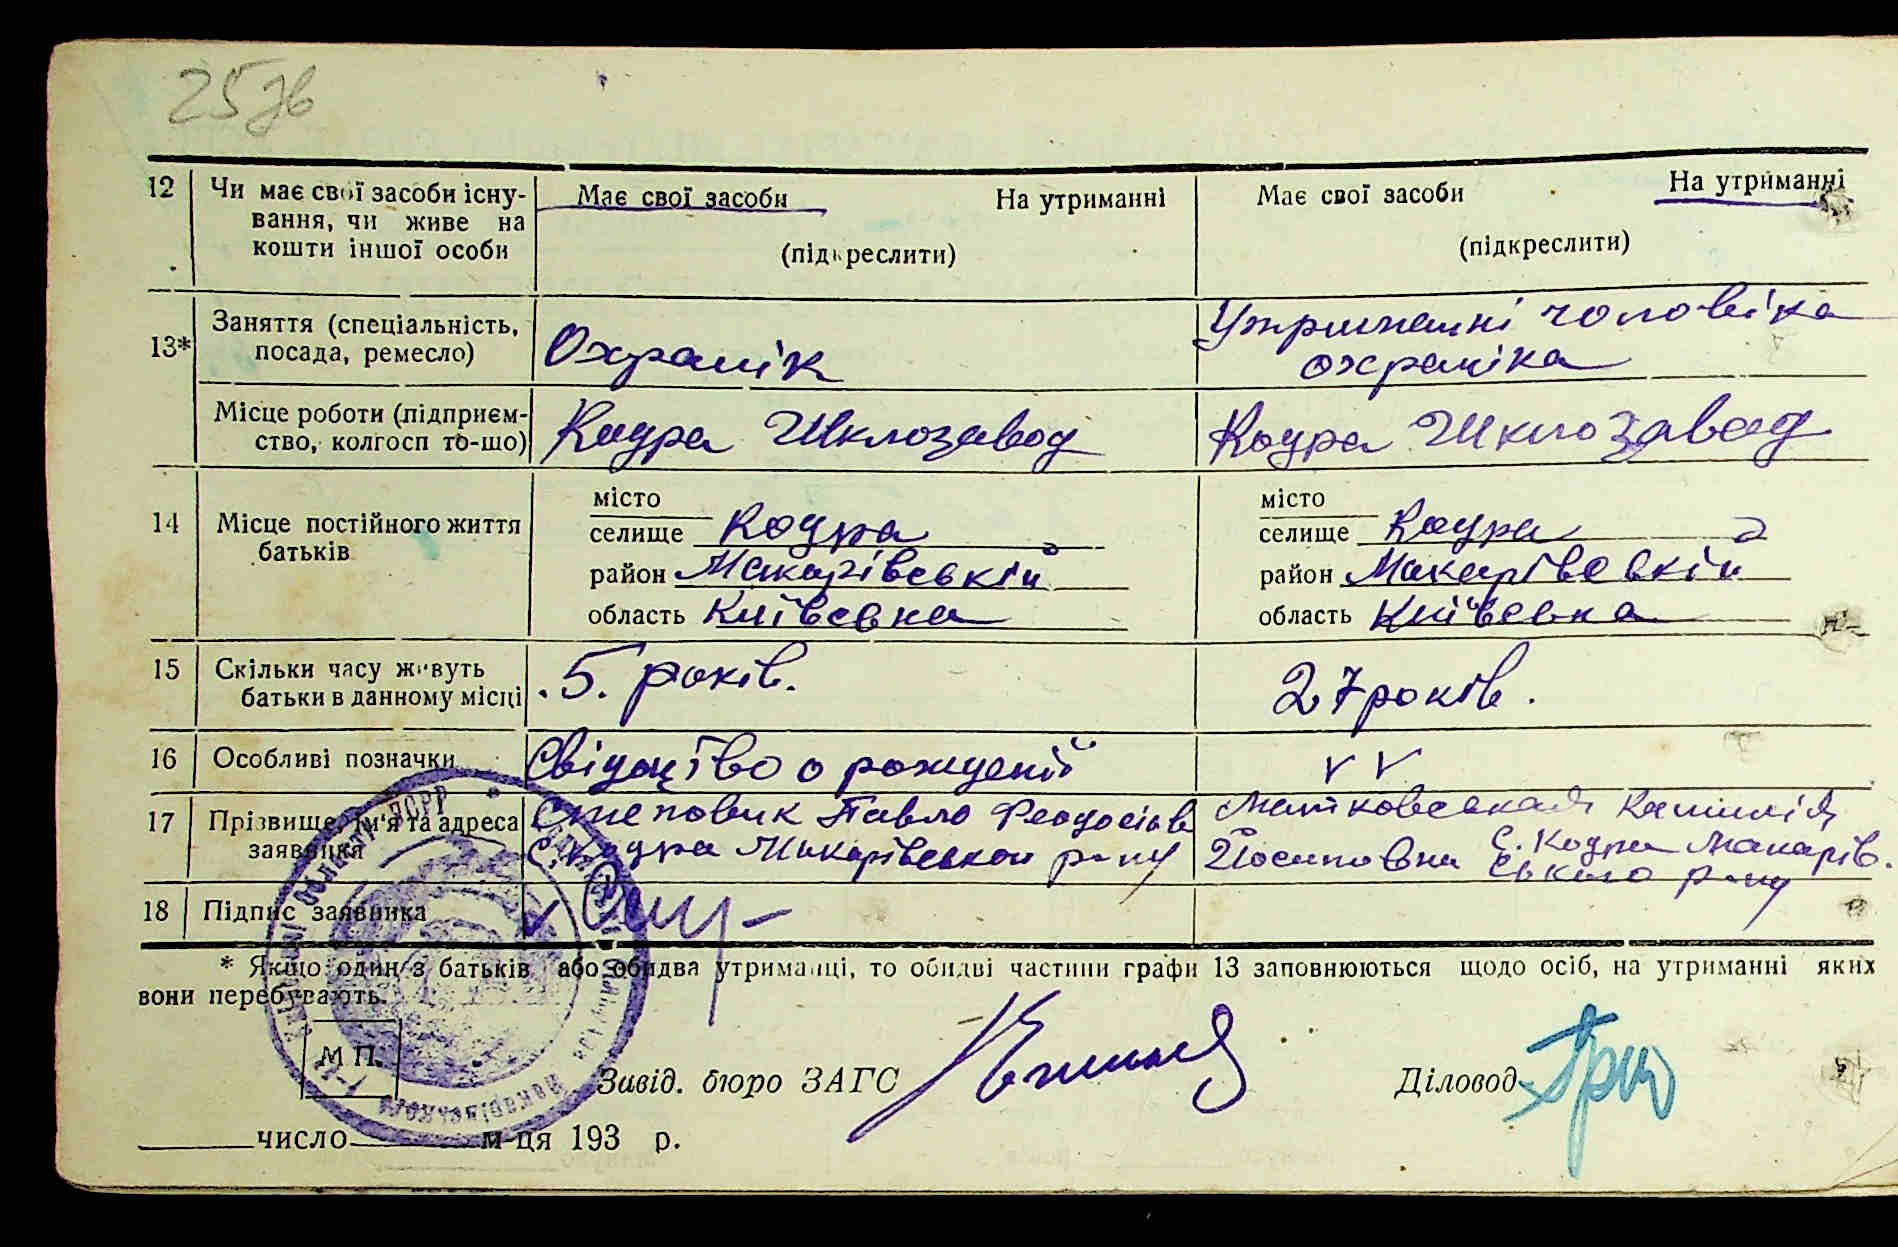 257в
12 Чи має свої засоби існу- Має свої засоби На утриманні Має свої засоби На утриманні
вання, чи живе на
кошти іншої особи (підкреслити) (підкреслити)
13* Заняття (спеціальність, посада, ремесло) Охранік Утриманні чоловіка
охраніка
Місце роботи (підприєм- Кодра Шклозавод Кодра Шклозавод
ство, колгосп то-що)
місто місто
14 Місце постійного життя селище Кодра селище Кодра
батьків район Макарівський район Макарівський
область Київська область Київська
15 Скільки часу живуть 5. років. 27 років.
батьки в данному місці
16 Особливі позначки Свідоцтво о рождении v v
17 Прізвище, ім'я та адреса Степовик Павло Феодосіев Матковеская Камилія
заявника С. Кодра Макарівськой р-ну Йосиповна С. Кодра Макарів.
ського р-ну
18 Підпис заявника
* Якщо один з батьків або обидва утриманці, то обидві частини графи 13 заповнюються щодо осіб, на утриманні яких
вони перебувають.
М П.
Завід. бюро ЗАГС Діловод
число м-ця 193 р.